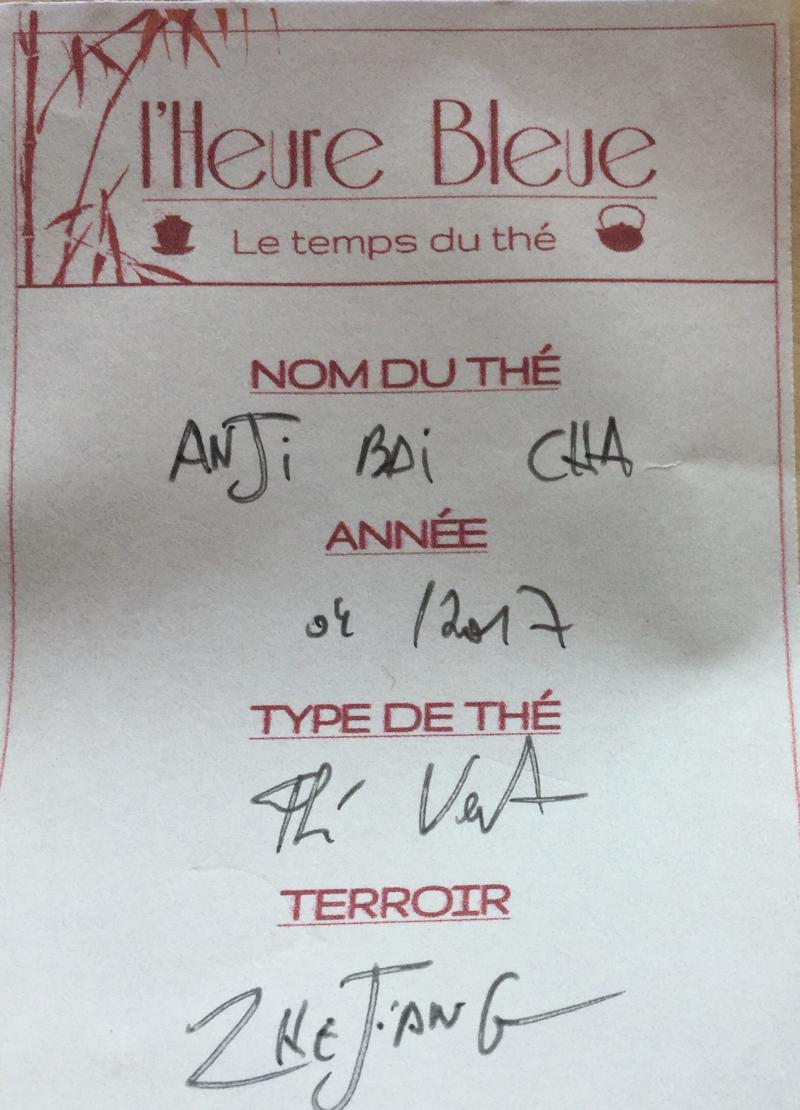 l'Heure Bleue
Le temps du thé
NOM DU THÉ
ANJi BAi CHA
ANNÉE
04 /2017
TYPE DE THÉ
Thé Vert
TERROIR
ZHEJiANG